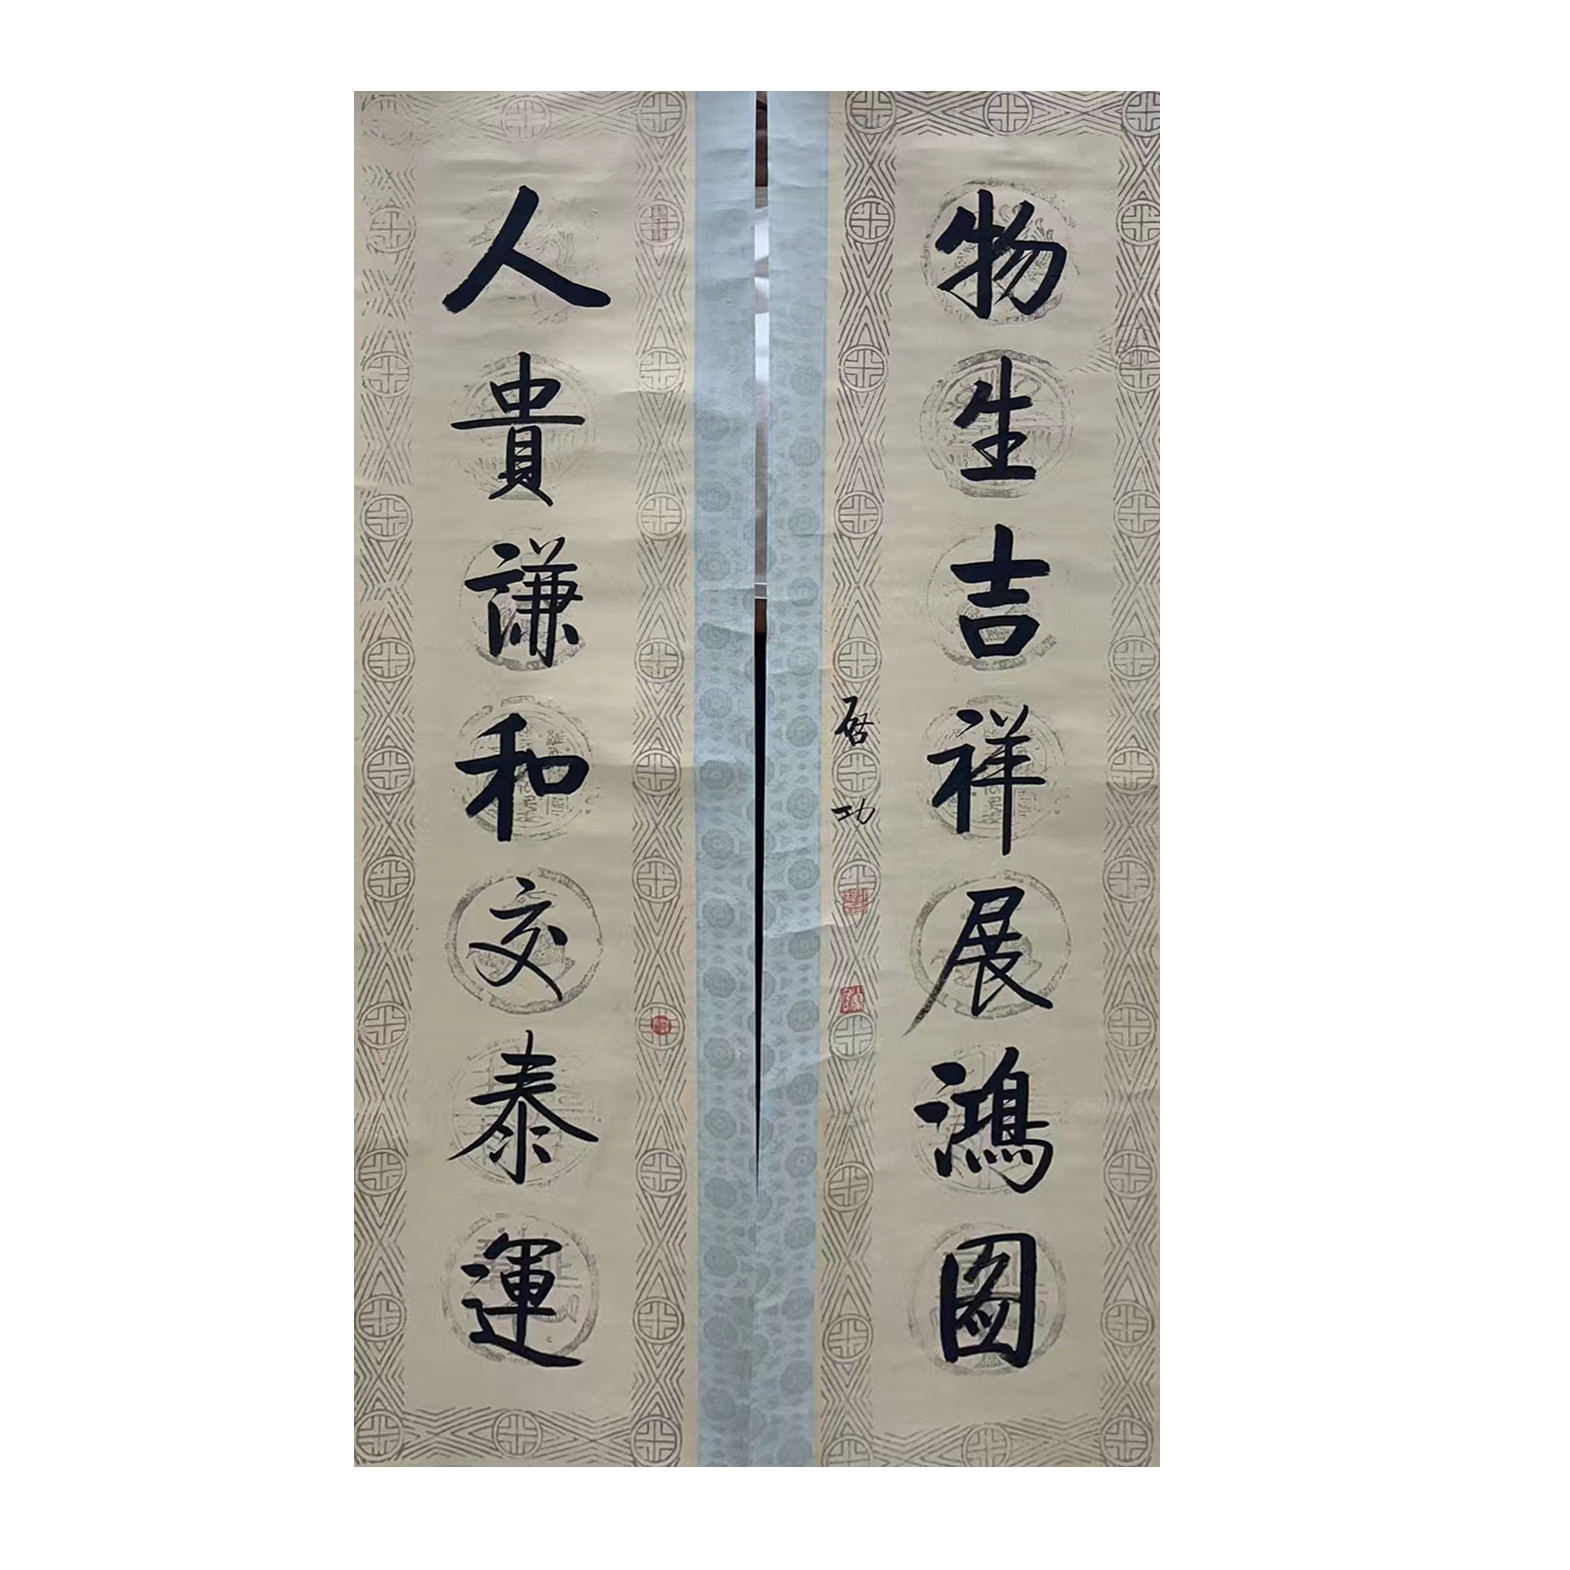 物生吉祥展鴻圖
啓功
人貴謙和交泰運